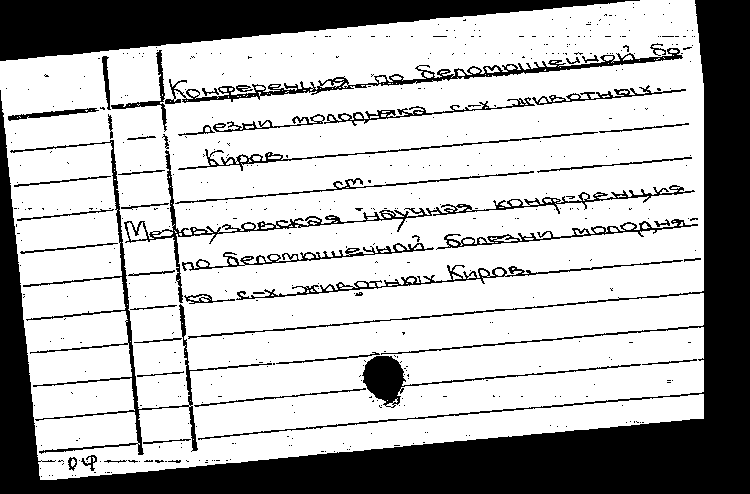 Конференция по беломышечной бо-
лезни молодняка с.-х. животных.
Киров.
см.
Межвузовская научная конференция
по беломышечной болезни молодня-
ка с.-х. животных Киров.